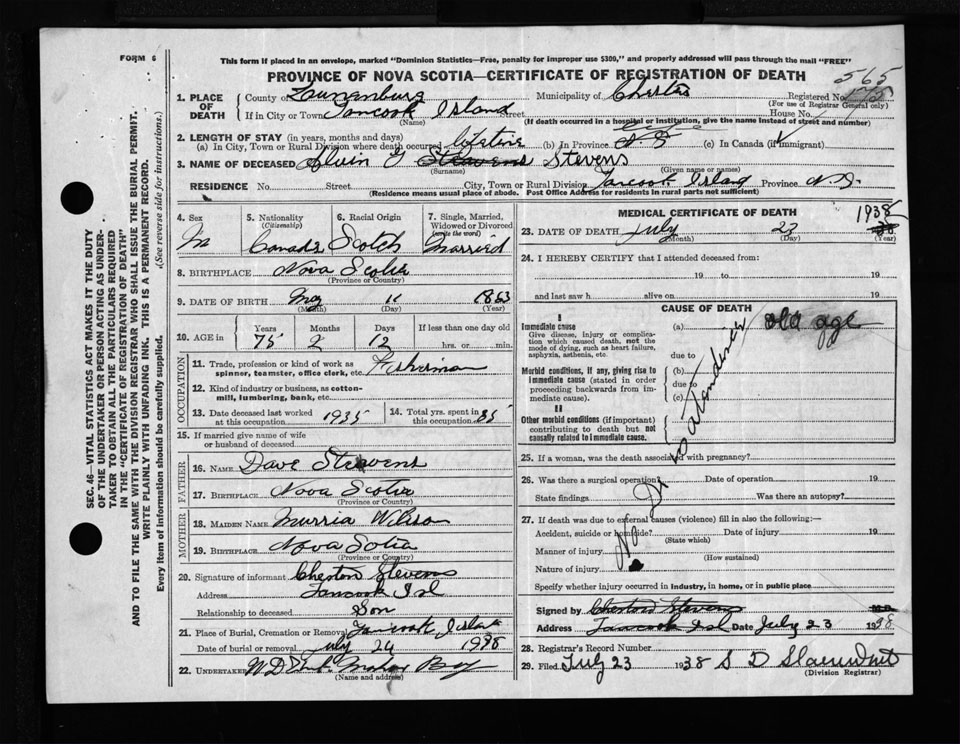 FORM 6
This form if placed in an envelope, marked "Dominion Statistics—Free, penalty for improper use $300," and properly addressed will pass through the mail "FREE"
PROVINCE OF NOVA SCOTIA—CERTIFICATE OF REGISTRATION OF DEATH
565
1. PLACE OF DEATH
County of Lunenburg Municipality of Chester Registered No.
(For use of Registrar General only)
If in City or Town Tancook Island Street House No.
(Name) (If death occurred in a hospital or institution, give the name instead of street and number)
2. LENGTH OF STAY (in years, months and days)
(a) In City, Town or Rural Division where death occurred lifetime (b) In Province (c) In Canada (if immigrant)
3. NAME OF DECEASED Alvin G Stevens Stevens
(Surname) (Given name or names)
RESIDENCE No. Street City, Town or Rural Division Tancook Island Province N.S.
(Residence means usual place of abode. Post Office Address for residents in rural parts not sufficient)
4. Sex M
5. Nationality (Citizenship) Canada
6. Racial Origin Scotch
7. Single, Married, Widowed or Divorced (write the word) Married
8. BIRTHPLACE Nova Scotia
(Province or Country)
9. DATE OF BIRTH May 11 1863
(Month) (Day) (Year)
10. AGE in Years 75 Months 2 Days 12 If less than one day old hrs. or min.
OCCUPATION
11. Trade, profession or kind of work as spinner, teamster, office clerk, etc. Fisherman
12. Kind of industry or business, as cotton-mill, lumbering, bank, etc.
13. Date deceased last worked at this occupation 1935
14. Total yrs. spent in this occupation 35
15. If married give name of wife or husband of deceased
FATHER
16. NAME Dave Stevens
17. BIRTHPLACE Nova Scotia
(Province or Country)
MOTHER
18. MAIDEN NAME Murria Wilson
19. BIRTHPLACE Nova Sotia
(Province or Country)
20. Signature of informant Cheston Stevens
Address Tancook Isl
Relationship to deceased Son
21. Place of Burial, Cremation or Removal Tancook Island
Date of burial or removal July 24 1938
22. UNDERTAKER Mahone Bay
(Name and address)
MEDICAL CERTIFICATE OF DEATH
23. DATE OF DEATH July 23 1938
(Month) (Day) (Year)
24. I HEREBY CERTIFY that I attended deceased from:
19 to 19
and last saw h alive on 19
CAUSE OF DEATH
I
Immediate cause (a) old age
Give disease, injury or complication which caused death, not the mode of dying, such as heart failure, asphyxia, asthenia, etc.
due to
Morbid conditions, if any, giving rise to immediate cause (stated in order proceeding backwards from immediate cause).
(b)
due to
(c)
II
Other morbid conditions (if important) contributing to death but not causally related to immediate cause.
No Dr in attendance
25. If a woman, was the death associated with pregnancy?
26. Was there a surgical operation? Date of operation 19
State findings Was there an autopsy?
27. If death was due to external causes (violence) fill in also the following:—
Accident, suicide or homicide? Date of injury 19
(State which)
Manner of injury
(How sustained)
Nature of injury
Specify whether injury occurred in industry, in home, or in public place
Signed by Cheston Stevens M.D.
Address Tancook Isl Date July 23 1938
28. Registrar's Record Number
29. Filed July 23 1938 S D
(Division Registrar)
SEC. 46—VITAL STATISTICS ACT MAKES IT THE DUTY
OF THE UNDERTAKER OR PERSON ACTING AS UNDERTAKER TO OBTAIN ALL THE PARTICULARS REQUIRED
IN THE "CERTIFICATE OF REGISTRATION OF DEATH"
AND TO FILE THE SAME WITH THE DIVISION REGISTRAR WHO SHALL ISSUE THE BURIAL PERMIT.
WRITE PLAINLY WITH UNFADING INK. THIS IS A PERMANENT RECORD.
Every item of information should be carefully supplied. (See reverse side for instructions.)